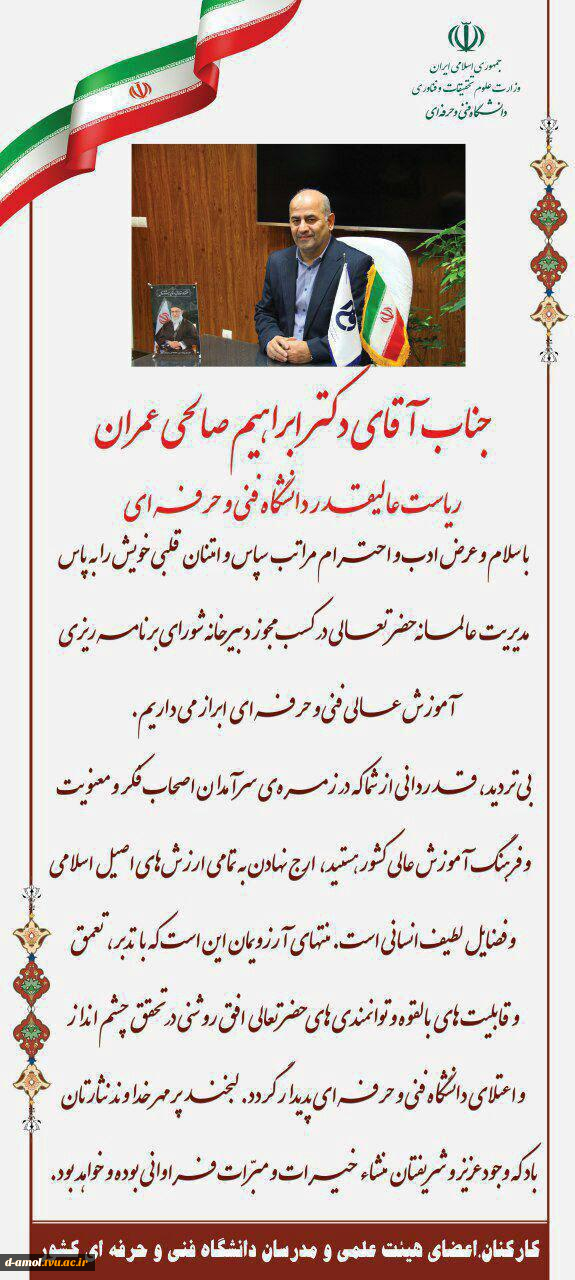 جمهوری اسلامی ایران
وزارت علوم تحقیقات و فناوری
دانشگاه فنی و حرفه ای
جناب آقای دکتر ابراهیم صالحی عمران
ریاست عالیقدر دانشگاه فنی و حرفه ای
باسلام و عرض ادب و احترام مراتب سپاس و امتنان قلبی خویش را به پاس
مدیریت عالمانه حضرتعالی در کسب مجوز دبیرخانه شورای برنامه ریزی
آموزش عالی فنی و حرفه ای ابراز می داریم.
بی تردید، قدردانی از شما که در زمره ی سرآمدان اصحاب فکر و معنویت
و فرهنگ آموزش عالی کشور هستید، ارج نهادن به تمامی ارزش های اصیل اسلامی
و فضایل لطیف انسانی است. منتهای آرزویمان این است که با تدبر، تعمق
و قابلیت های بالقوه و توانمندی های حضرتعالی افق روشنی در تحقق چشم انداز
و اعتلای دانشگاه فنی و حرفه ای پدیدار گردد. لبخند پر مهر خداوند نثارتان
باد که وجود عزیز و شریفتان منشاء خیرات و مبرّات فراوانی بوده و خواهد بود.
کارکنان،اعضای هیئت علمی و مدرسان دانشگاه فنی و حرفه ای کشور
d-amol.tvu.ac.ir